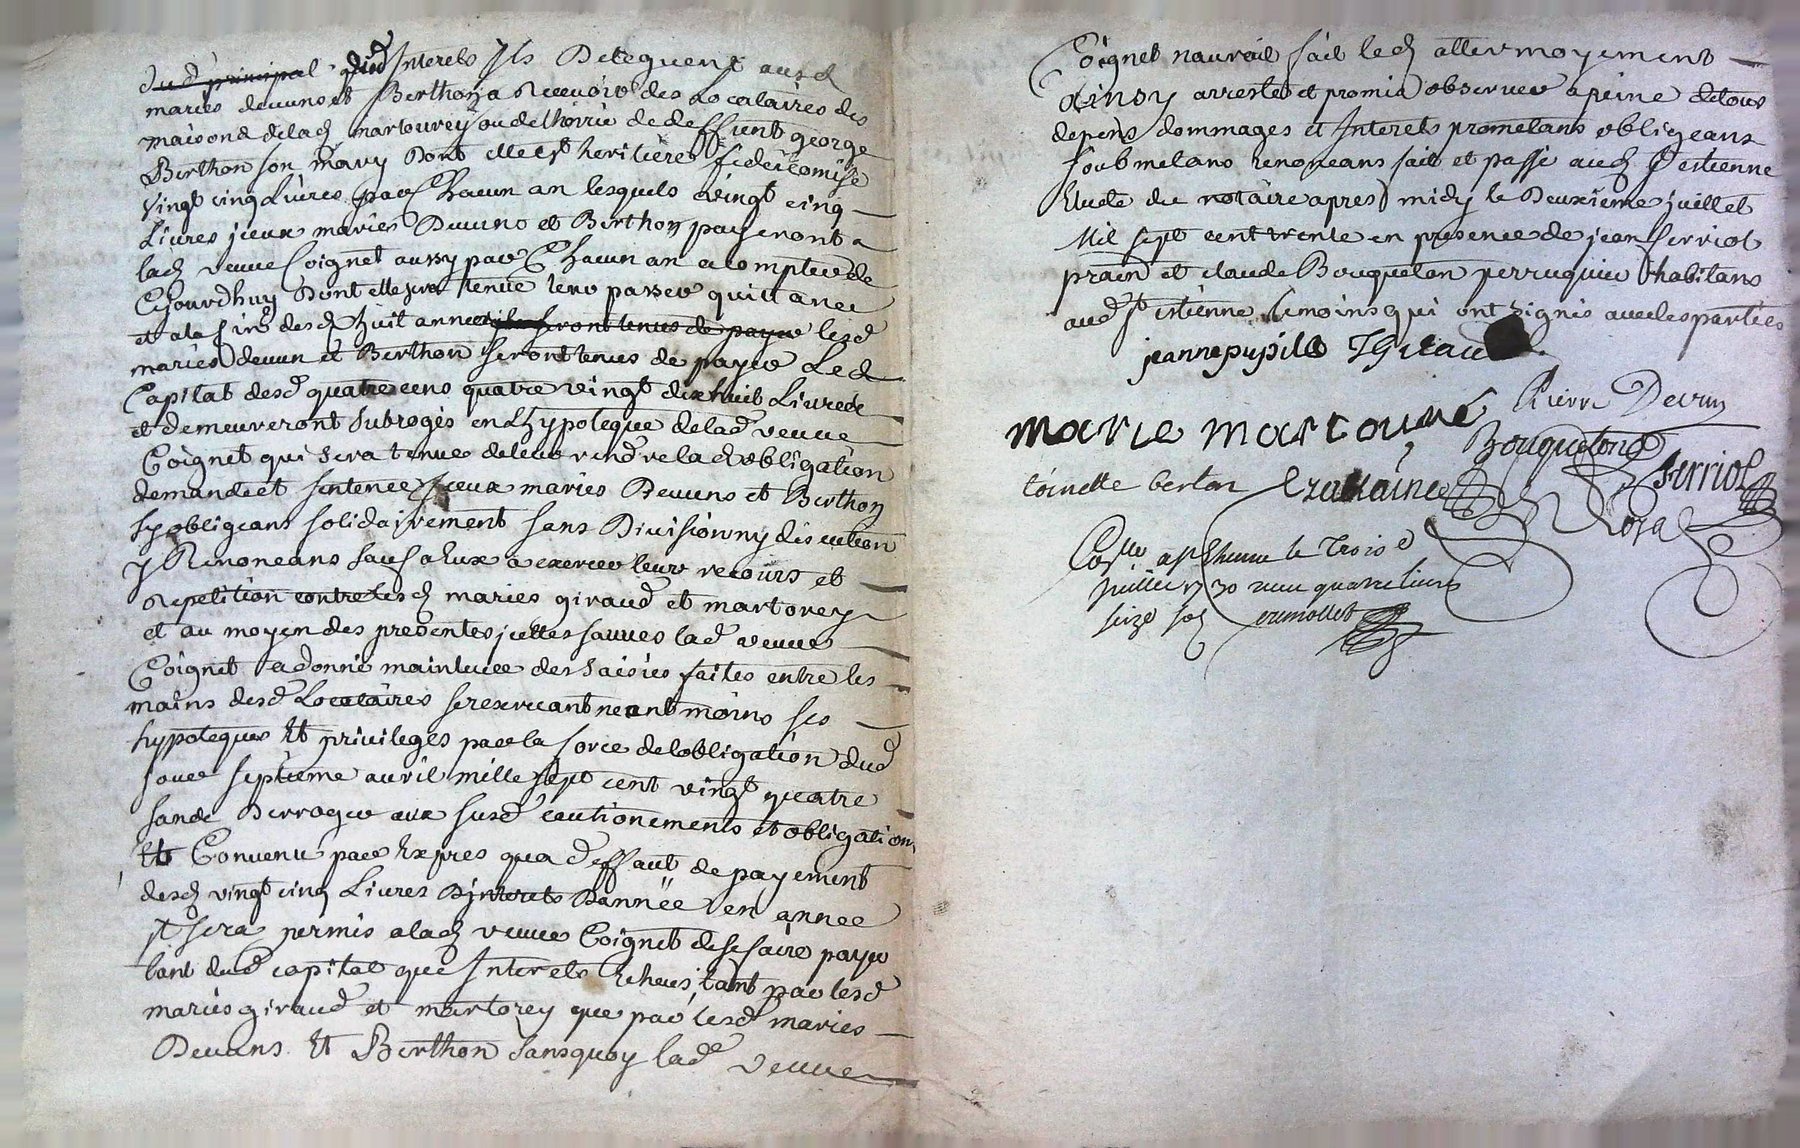 dud principal dud Interets Ils Deleguent ausd
maries devuns et Berthon a Recevoir des Locataires des
maisons de lad martourey ou de lhoirie de deffunt george
Berthon son mary Dont elle est heritiere fideicomise
vingt cinq Livres par Chacun an lesquels vingt cinq
Livres iceux maries Devuns et Berthon payeront a
lad veuve Coignet aussy par Chacun an a compter de
Cejourdhuy Dont elle sera tenue leur passer quittance
et a la fin desd huit années ils seront tenus de payer lesd
maries devun et Berthon seront tenus de payer Led
Capital desd quatre cens quatre vingt dix huit Livres
et demeureront subrogés en Lhypoteque de lad veuve
Coignet qui sera tenue de leur rendre lad obligation
demande et sentence iceux maries Devuns et Berthon
sy obligeans solidairement sans Division ny discution
y Renonceans sauf a Eux a exercer leur recours et
Repetition contre lesd maries giraud et martorey
et au moyen des presentes icelles sauves lad veuve
Coignet a donné mainlevée des saisies faites entre les
mains desd Locataires se reservant neantmoins ses
hypoteques Et privileges par la force de lobligation dud
jour septieme avril mille sept cent vingt quatre
sans Derroger aux susd cautionements et obligation
Et Convenu par Expres qua deffaut de payement
desd vingt cinq Livres Dinterets Dannée en année
Il sera permis a lad veuve Coignet de se faire payer
tant dud capital que Interets Echeus tant par lesd
maries giraud et martorey que par lesd maries
Devuns Et Berthon sans quoy lad veuve
Coignet nauroit fait led attermoyement
Ainsy arresté et promis observer a peine de tous
depens dommages et Interets prometans obligeans
soubmetans renonceans fait et passé aud St estienne
Etude du notaire apres midy le Deuxieme juillet
Mil sept cent trente en presence de jean ferriol
prain et claude Bouqueton perruquier habitans
aud St estienne temoins qui ont signés avec les parties
jeanne pupil Giraud
marie martouré
Pierre Devun
Bouqueton
ferriol
toinette berton
Collé a St Etienne le Trois
juillet 1730 reçu quatre livres
seize sols